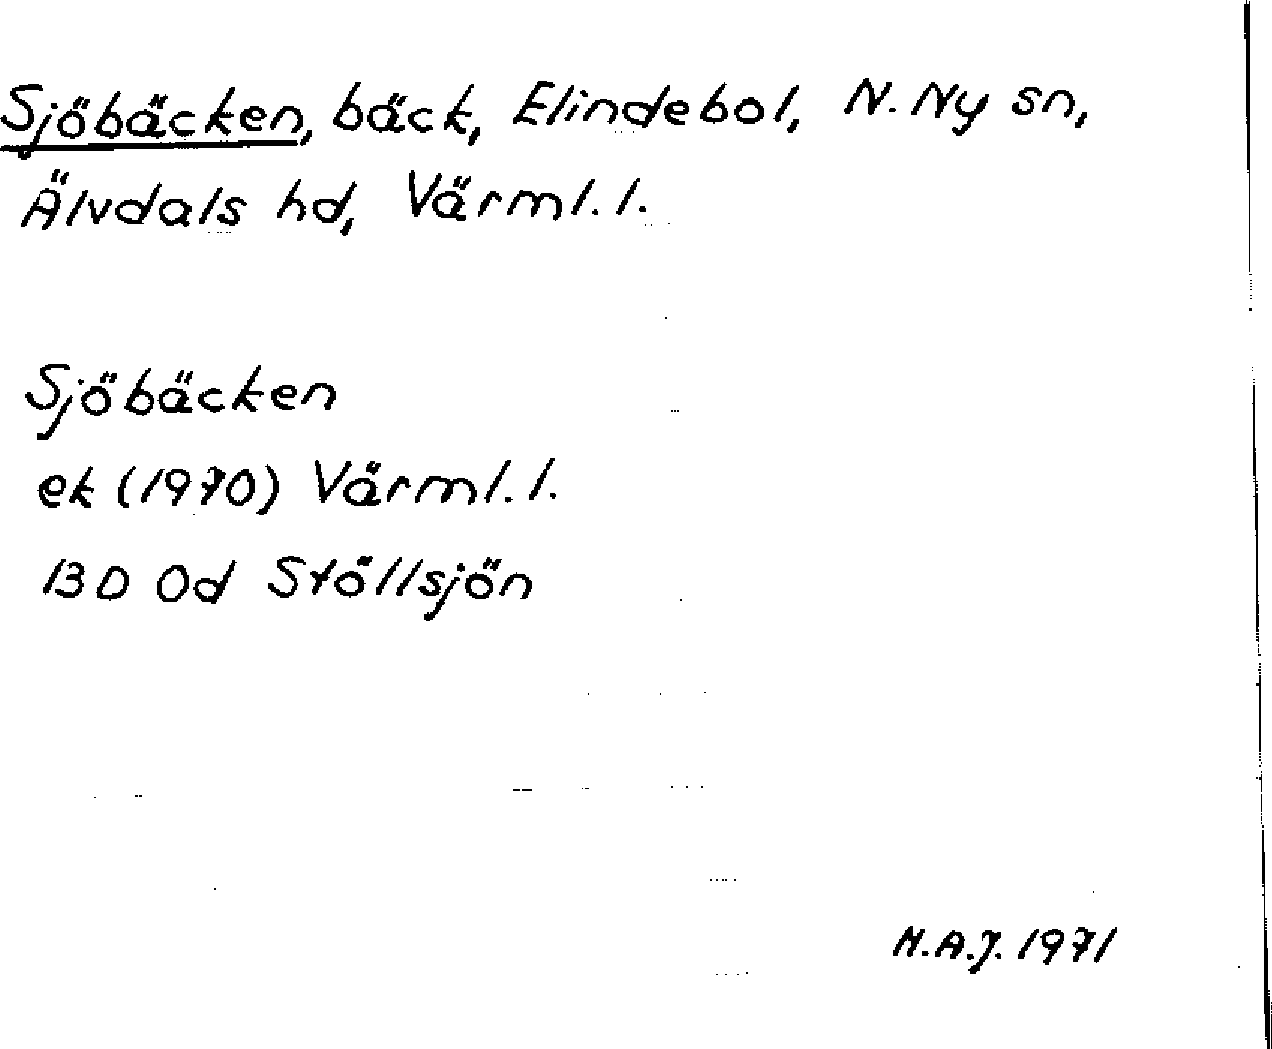 Sjöbäcken, bäck, Elindebol, N. Ny sn,
Älvdals hd, Värml. l.
Sjöbäcken
ek (1970) Värml. l.
13 D 0d Stöllsjön
N.A.J. 1971